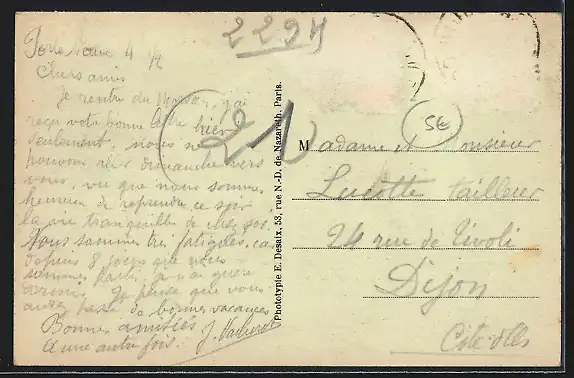 2294
21
SE
4
Chers amis
Je rentre du Morvan, j'ai
reçu votre bonne lettre hier
seulement, nous ne
pouvons aller dimanche vers
vous, vu que nous sommes
heureux de reprendre ce soir
la vie tranquille de chez soi.
Nous sommes très fatigués, car
depuis 8 jours que nous
sommes partis,
Je pense que vous
avez passé de bonnes vacances
Bonnes amitiés
A une autre fois.
Phototypie E. Desaix, 53, rue N.-D. de Nazareth, Paris.
Madame et Monsieur
Lucotte tailleur
24 rue de Tivoli
Dijon
Côte d'Or